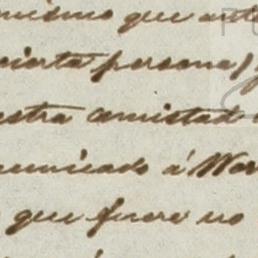 mismo que ante
cierta persona)
estra amistad
municado á Wer
que fuere no